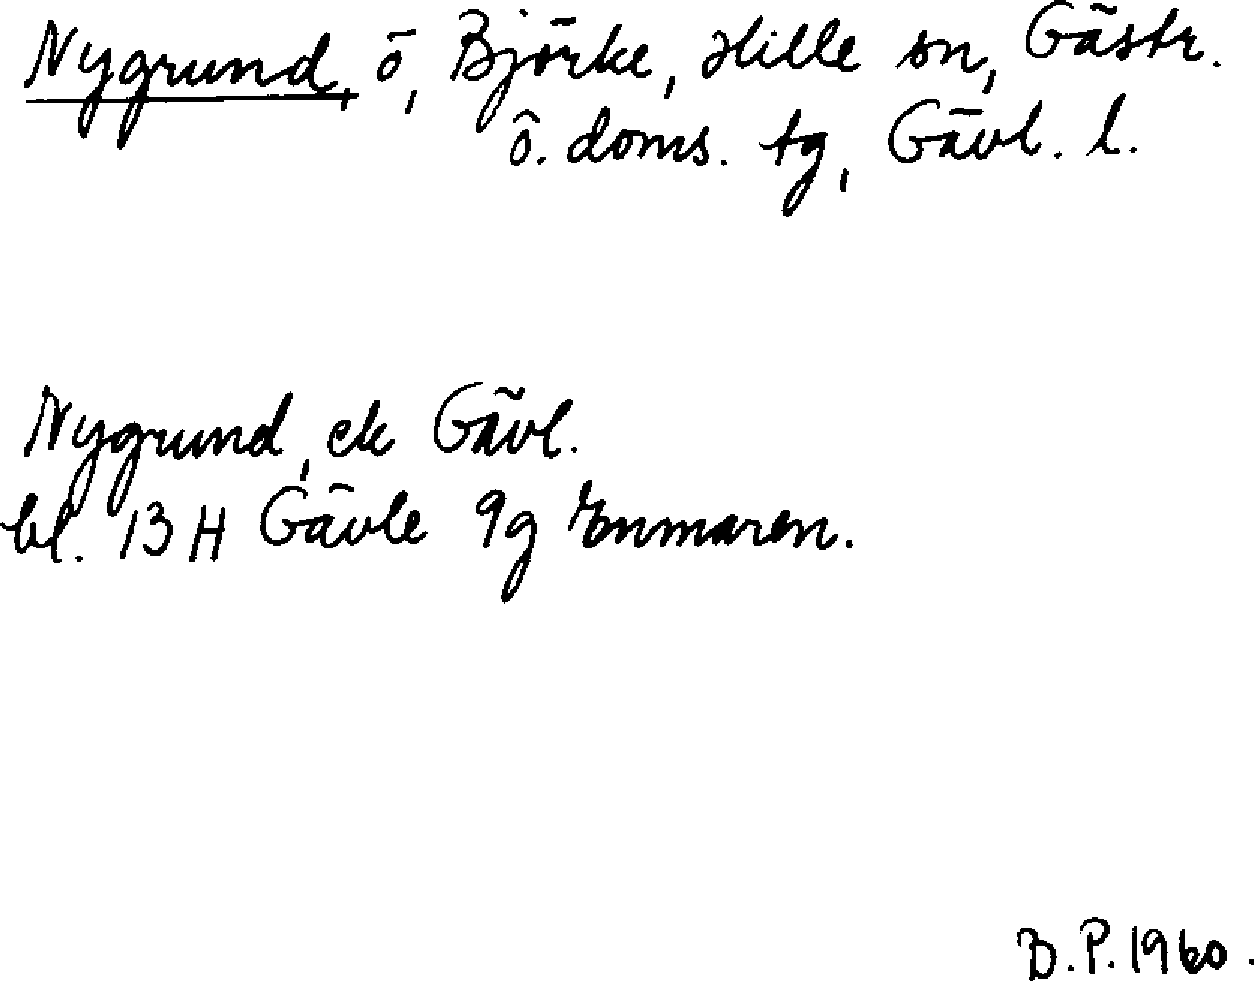 Nygrund, ö, Björke, Hille sn, Gästr.
ö. doms. tg, Gävl. l.
Nygrund, ek Gävl.
bl. 13 H Gävle 9g Enmaren.
B.P. 1960.